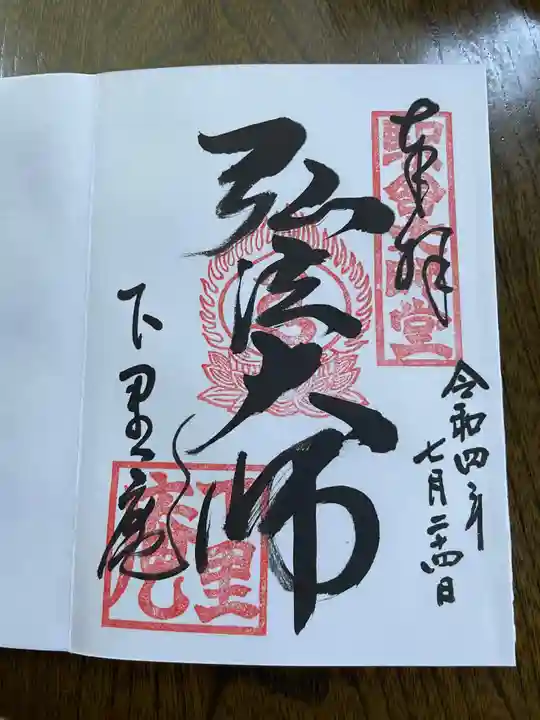 奉拝
令和四年
七月二十四日
弘法大師
下里庵
下里庵